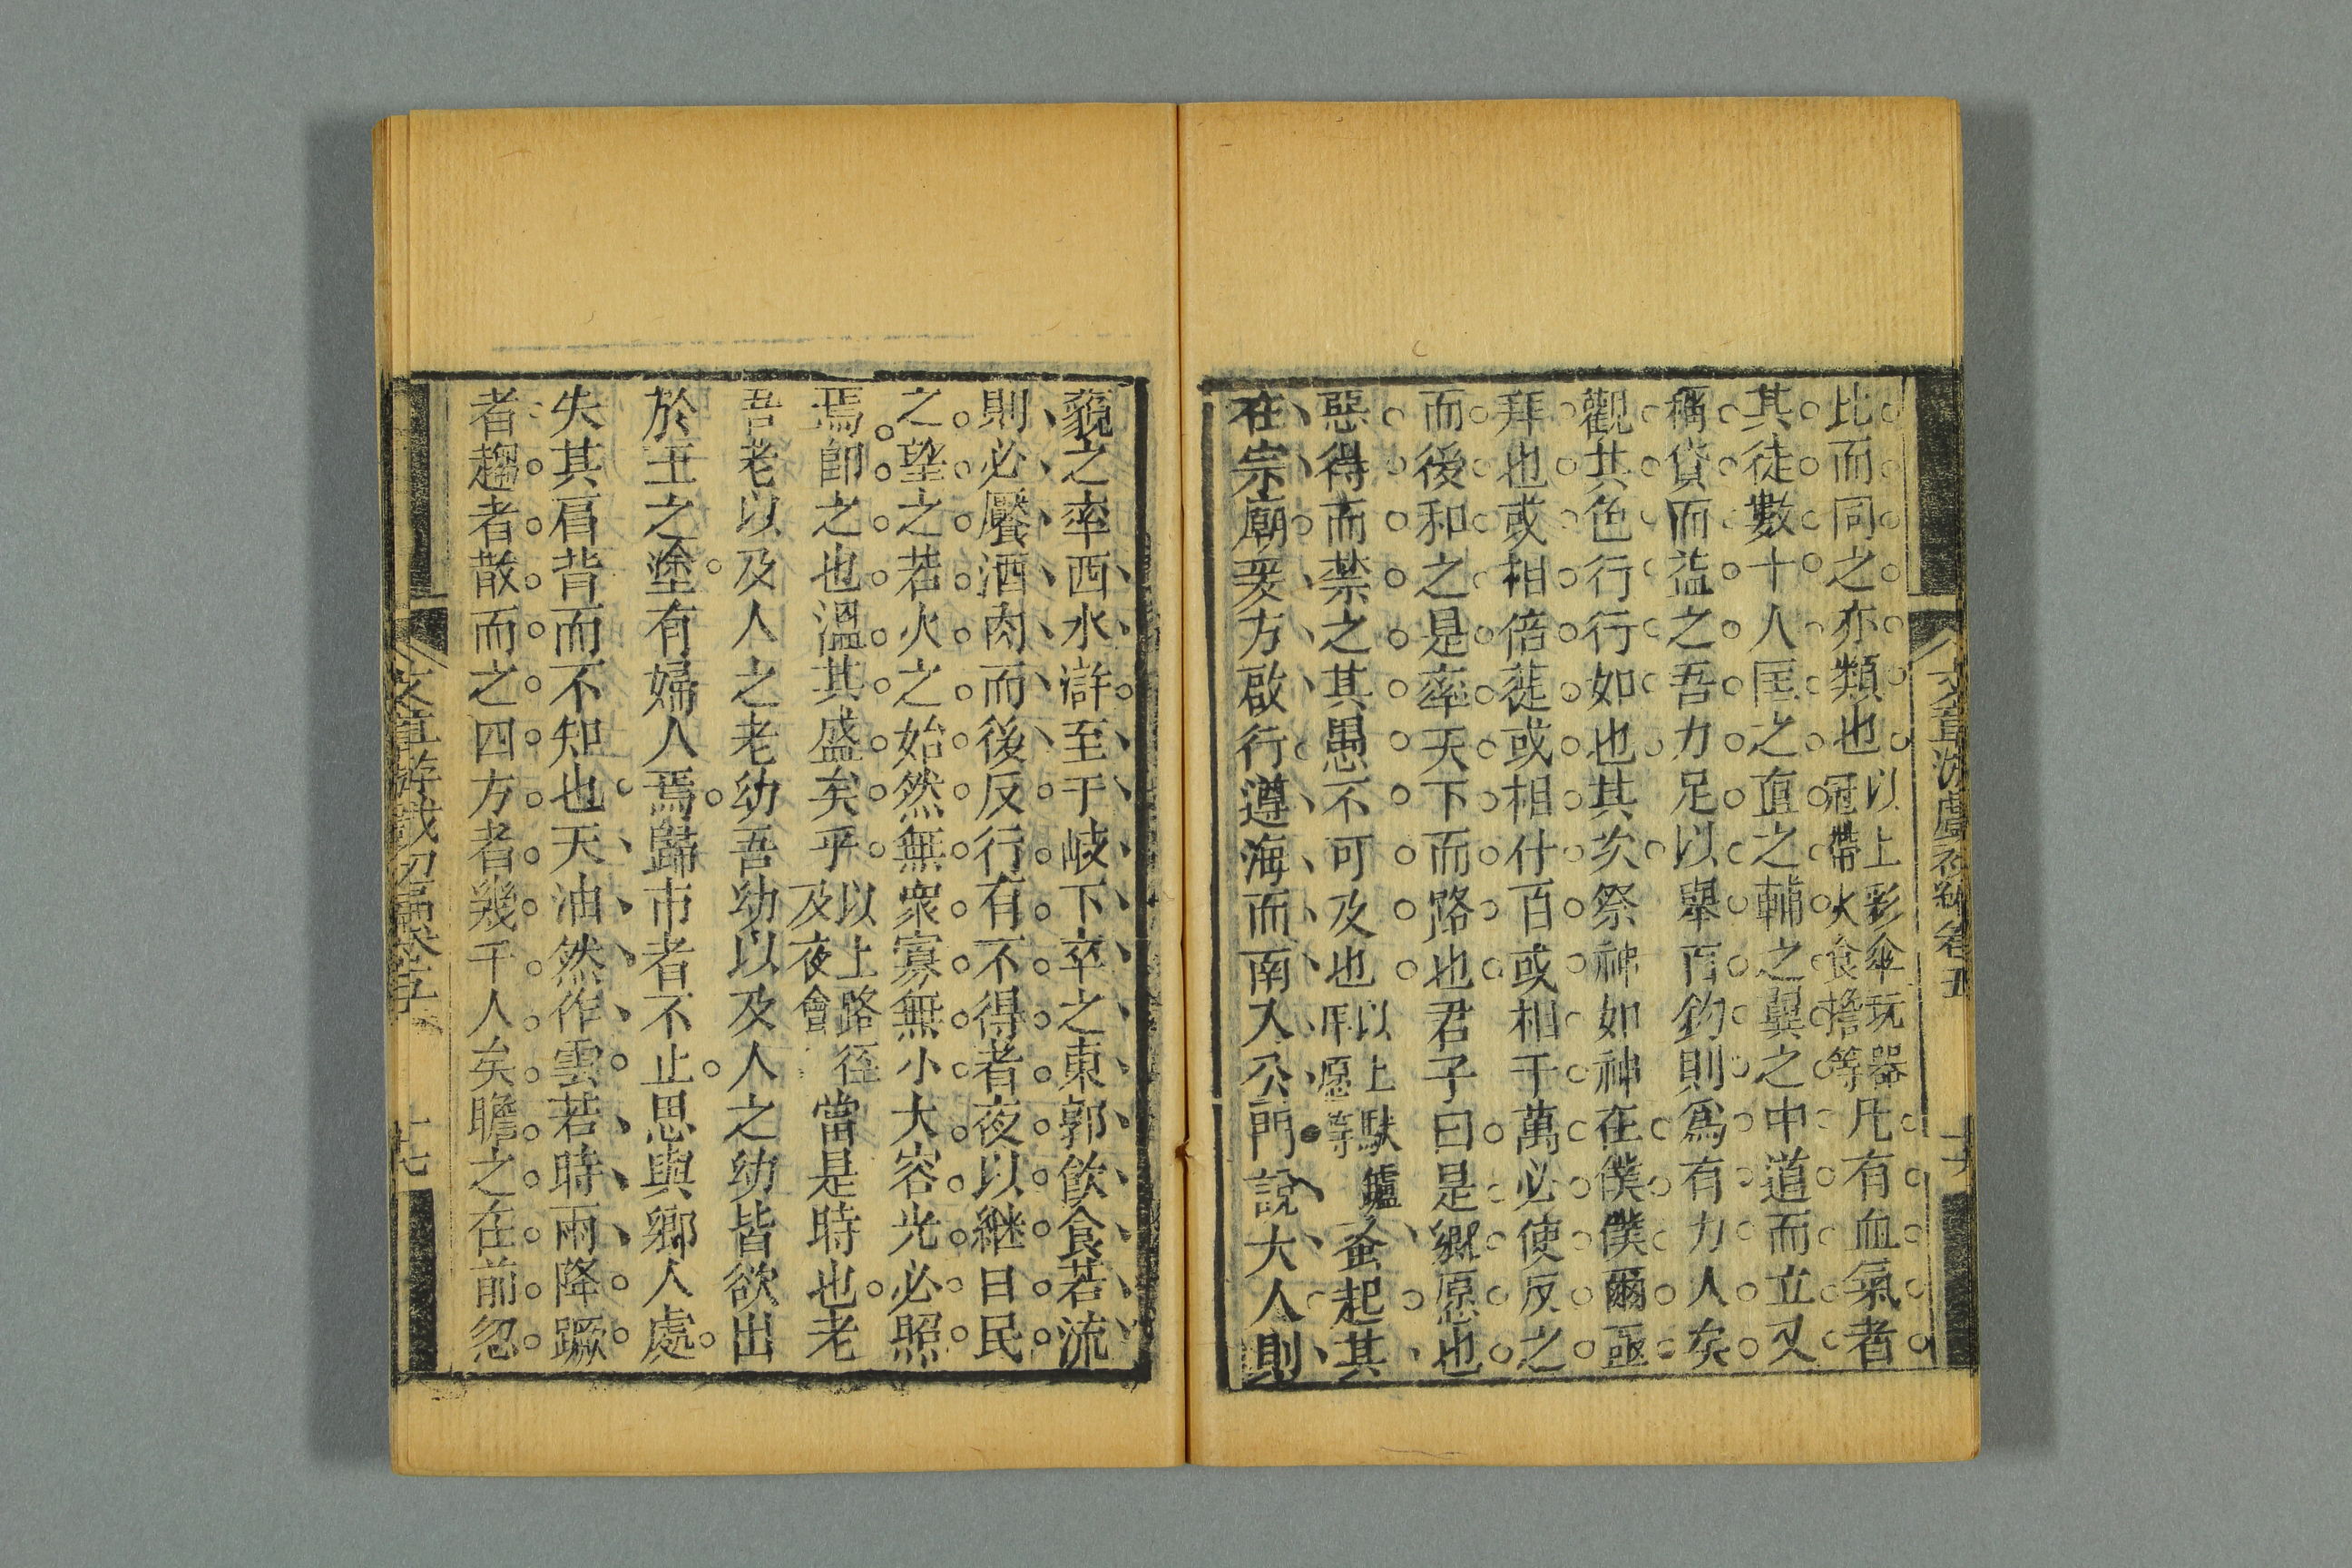 比而同之亦類也以上彩傘玩器冠帶火食擔等凡有血氣者
其徒數十人匡之直之輔之翼之中道而立又
稱貸而益之吾力足以舉百鈞則爲有力人矣
觀其色行行如也其次祭神如神在僕僕爾亟
拜也或相倍蓰或相什百或相千萬必使反之
而後和之是率天下而路也君子曰是鄉愿也
惡得而禁之其愚不可及也以上馱爐愿等蚤起其
在宗廟爰方啟行遵海而南入公門說大人則
藐之率西水滸至于岐下卒之東郭飲食若流
則必饜酒肉而後反行有不得者夜以継日民
之望之若火之始然無衆寡無小大容光必照
焉卽之也溫其盛矣乎以上路徑及夜會當是時也老
吾老以及人之老幼吾幼以及人之幼皆欲出
於王之塗有婦人焉歸市者不止思與鄉人處
失其肩背而不知也天油然作雲若時雨降蹶
者趨者散而之四方者幾千人矣瞻之在前忽
文章游戲初編卷五
十七